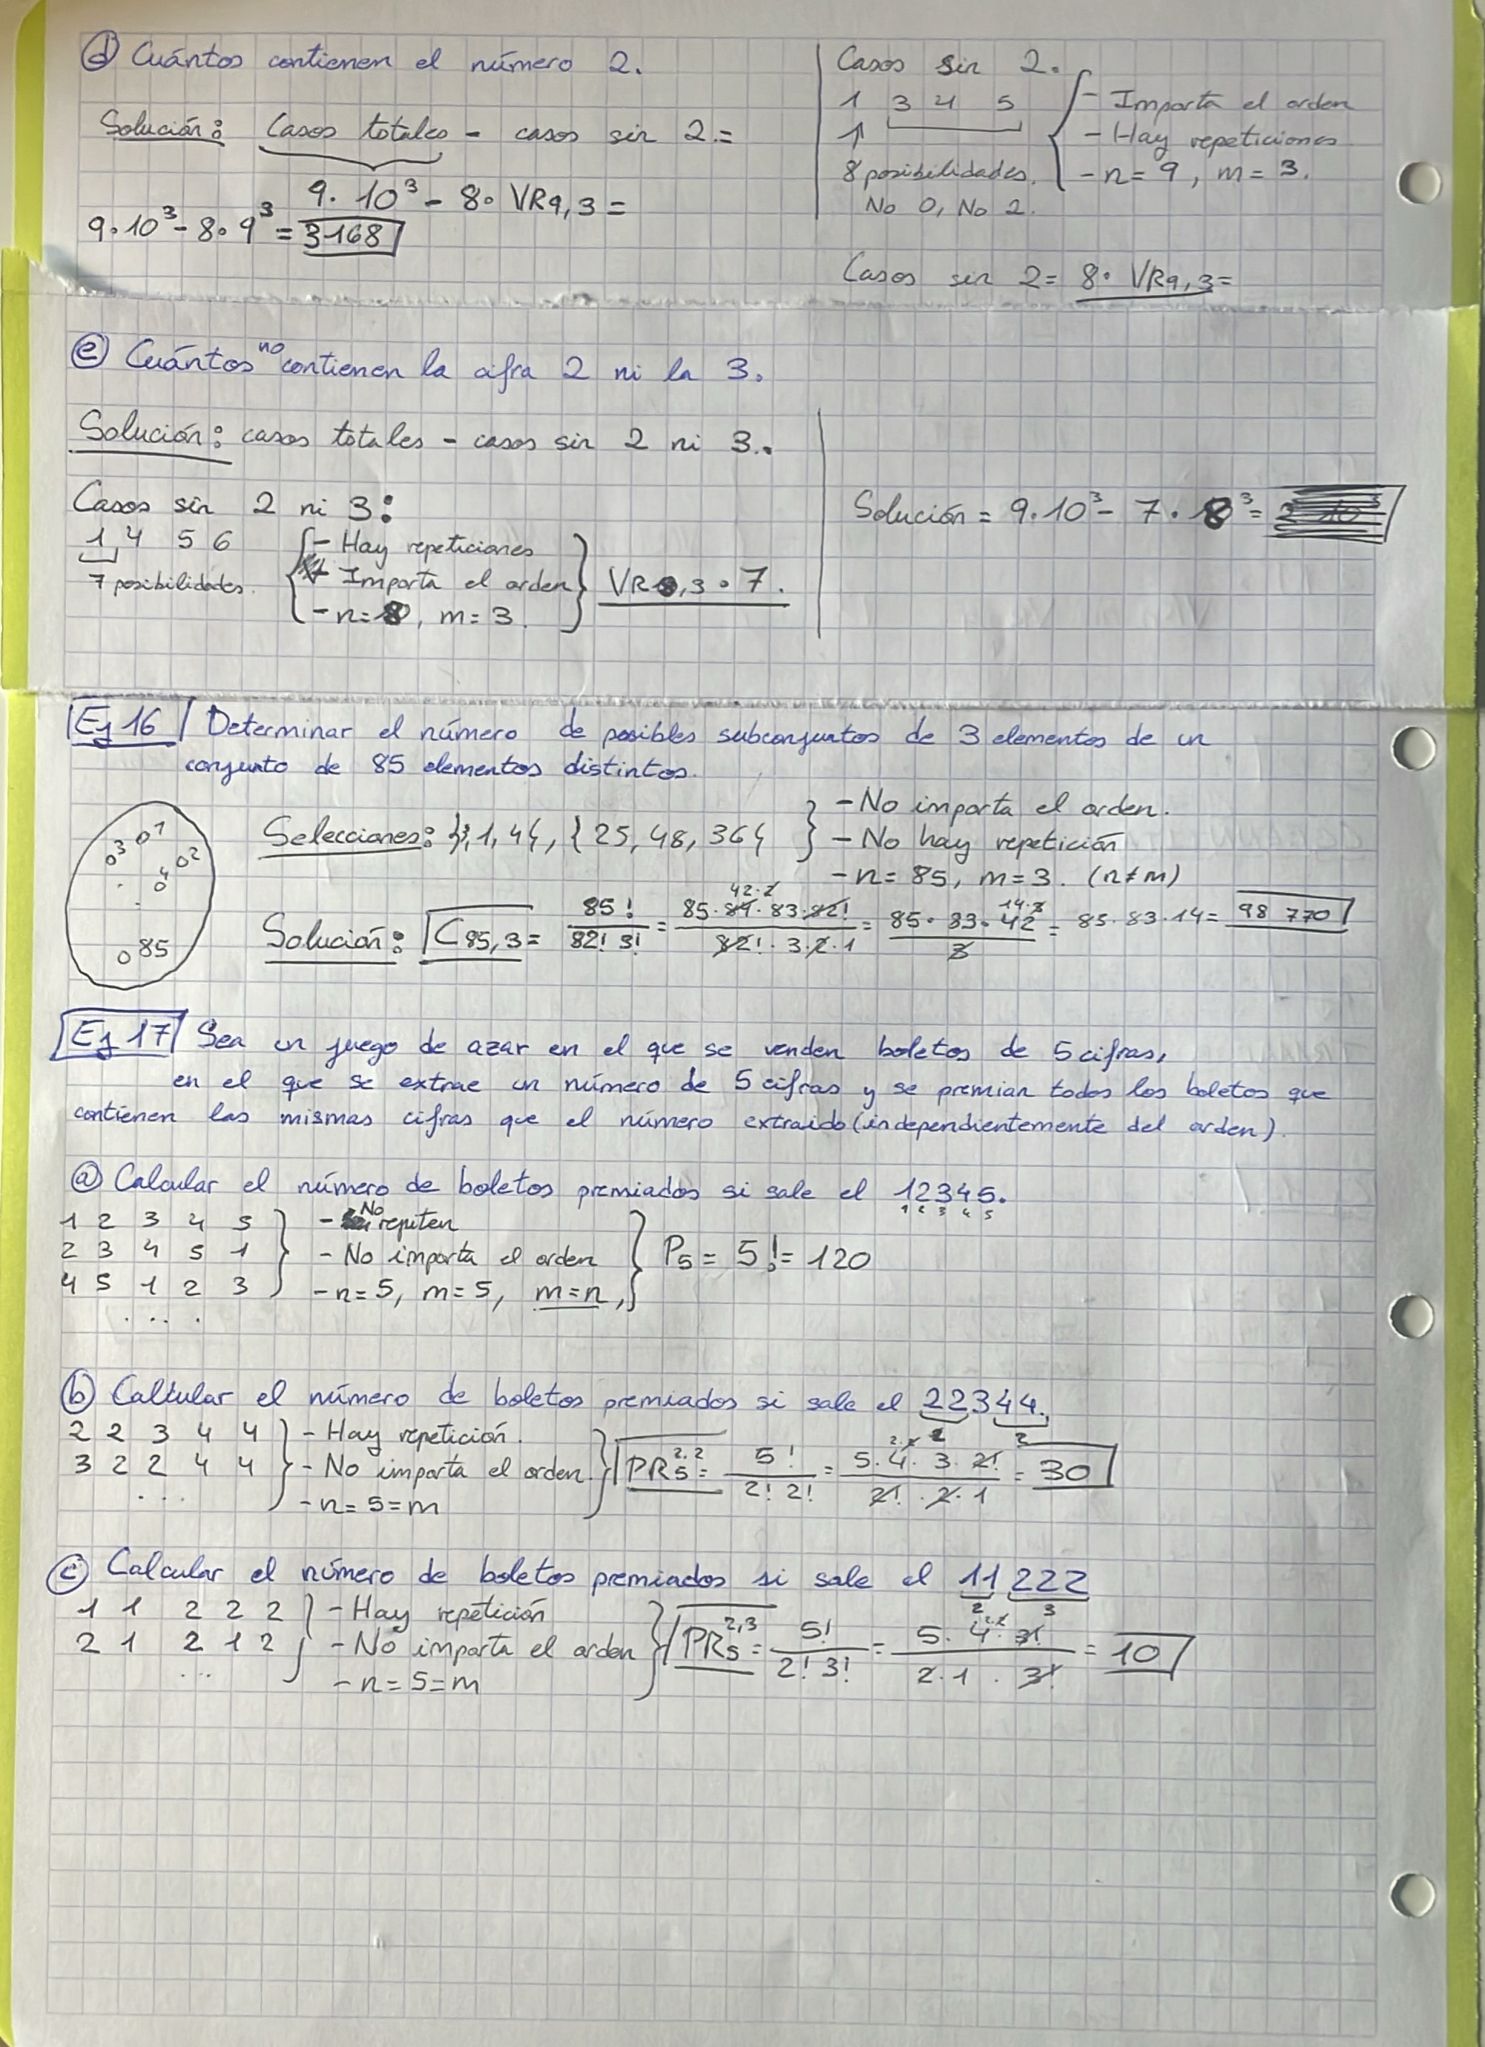 d Cuántos contienen el número 2.
Solución: Casos totales - casos sin 2.=
9·10³ - 8· VR9,3 =
9·10³ - 8·9³ = 3168
Casos sin 2.
1 3 4 5
8 posibilidades.
No 0, No 2.
- Importa el orden
- Hay repeticiones
- n= 9, m= 3.
Casos sin 2= 8· VR9,3=
e Cuántos no contienen la cifra 2 ni la 3.
Solución: casos totales - casos sin 2 ni 3.
Casos sin 2 ni 3:
1 4 5 6
7 posibilidades.
- Hay repeticiones
Importa el orden
- n=8, m=3.
VR8,3 · 7.
Solución = 9·10³ - 7·8³ =
Ej 16 Determinar el número de posibles subconjuntos de 3 elementos de un
conjunto de 85 elementos distintos.
3 1 2 4 85
Selecciones: {3,1,4}, {25, 48, 36}
- No importa el orden.
- No hay repetición
- n= 85, m=3. (n≠m)
Solución: C85,3 = 85! / 82! 3! = 85·84·83·82! / 82!·3·2·1 = 85·83·42 / 3 = 85·83·14= 98 770
42·2
14·3
Ej 17 Sea un juego de azar en el que se venden boletos de 5 cifras,
en el que se extrae un número de 5 cifras y se premian todos los boletos que
contienen las mismas cifras que el número extraido (independientemente del orden).
a Calcular el número de boletos premiados si sale el 12345.
1 2 3 4 5
1 2 3 4 5
2 3 4 5 1
4 5 1 2 3
. . . .
- No repiten
- No importa el orden
- n=5, m=5, m=n,
P5 = 5! = 120
b Caltular el número de boletos premiados si sale el 22344.
2 2
2 2 3 4 4
3 2 2 4 4
. . .
- Hay repetición.
- No importa el orden.
- n= 5=m
PR5 2,2 = 5! / 2! 2! = 5·4·3·2! / 2!·2·1 = 30
2·2
c Calcular el número de boletos premiados si sale el 11 222
2 3
1 1 2 2 2
2 1 2 1 2
. . .
- Hay repetición
- No importa el orden
- n=5=m
PR5 2,3 = 5! / 2! 3! = 5·4·3! / 2·1·3! = 10
2·2